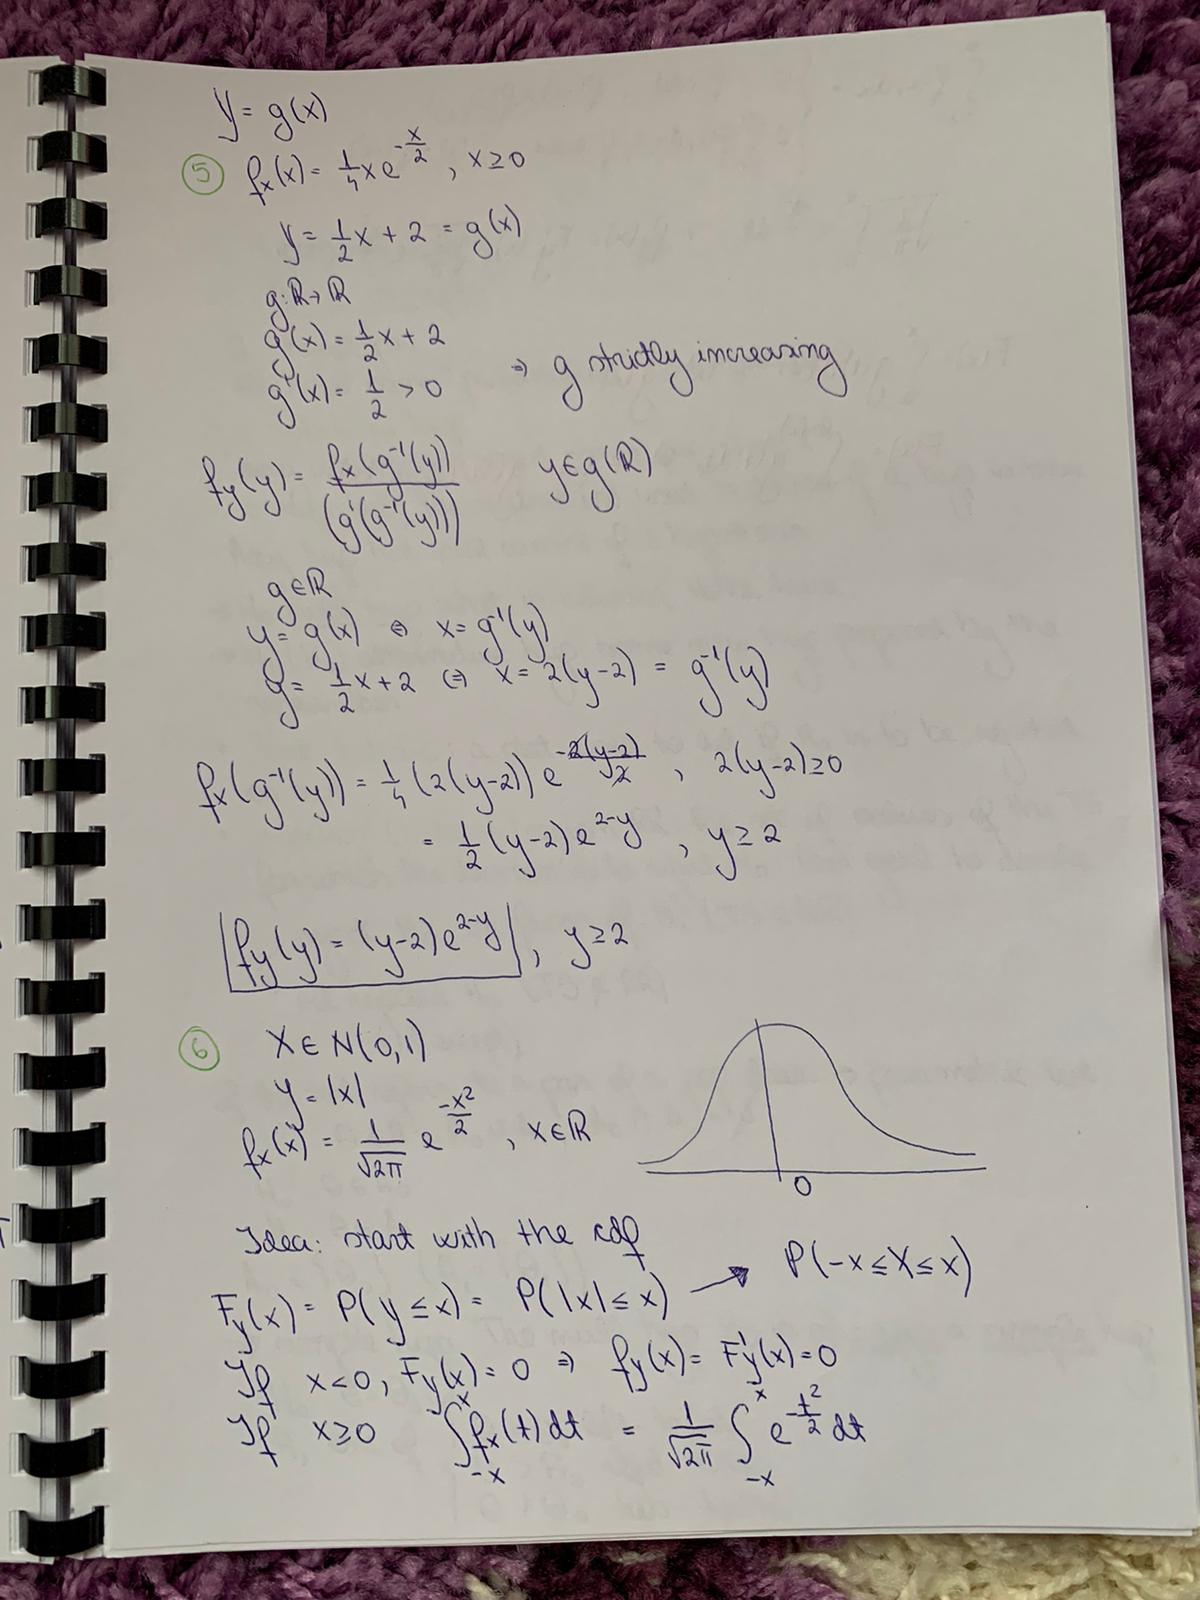 y = g(x)
⑤ fx(x) = 1/4 x e^(-x/2) , x ≥ 0
y = 1/2 x + 2 = g(x)
g: ℝ → ℝ
g(x) = 1/2 x + 2
g'(x) = 1/2 > 0 ⇒ g strictly increasing
fy(y) = fx(g⁻¹(y)) / (g'(g⁻¹(y))) y ∈ g(ℝ)
g ∈ ℝ
y = g(x) ⇔ x = g⁻¹(y)
y = 1/2 x + 2 ⇔ x = 2(y-2) = g⁻¹(y)
fx(g⁻¹(y)) = 1/4 (2(y-2)) e^(-2(y-2)/2) , 2(y-2) ≥ 0
= 1/2 (y-2) e^(2-y) , y ≥ 2
fy(y) = (y-2) e^(2-y) , y ≥ 2
⑥ X ∈ N(0,1)
y = |x|
fx(x) = 1/√2π e^(-x²/2) , x ∈ ℝ
0
Idea: start with the cdf
Fy(x) = P(y ≤ x) = P(|x| ≤ x) → P(-x ≤ X ≤ x)
If x < 0, Fy(x) = 0 ⇒ fy(x) = F'y(x) = 0
If x ≥ 0 ∫_(-x)^x fx(t) dt = 1/√2π ∫_(-x)^x e^(-t²/2) dt